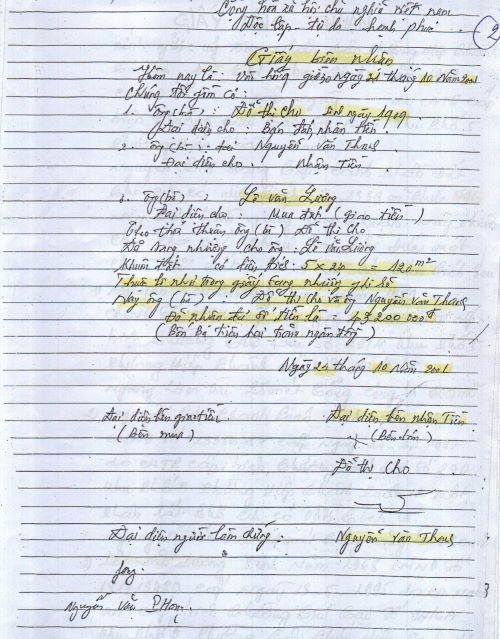 Cộng hòa xã hội chủ nghĩa việt nam
Độc lập tự do hạnh phúc
2
Giấy biên nhận
Hôm nay là: vào hồi giờ ngày 24 tháng 10 Năm 2001
Chúng tôi gồm có:
1. Ông (bà): Đỗ thị Cho sinh ngày 1909
Đại diện cho: Bán đất, nhận tiền.
2. Ông (bà): Nguyễn Văn
Đại diện cho. Nhận Tiền
3. Ông (bà): Lê văn Lương
Đại diện cho: Mua đất (giao tiền)
theo thỏa thuận ông (bà) Đỗ thị Cho
Đã sang nhượng cho ông: Lê Văn Lương
Khuôn đất có diện tích: 5 x 24 = 120m²
như trong giấy sang nhượng ghi số
Nay ông (bà): Đỗ thị Cho và ông Nguyễn văn
Đã nhận đủ số tiền là = 43200000đ
(Bốn ba triệu hai trăm ngàn đồng)
Ngày 24 tháng 10 Năm 2001
Đại diện bên giao tiền. Đại diện bên nhận Tiền
(Bên mua) (Bên bán)
Đỗ thị Cho
Đại diện người làm chứng: Nguyễn văn
Nguyễn Văn